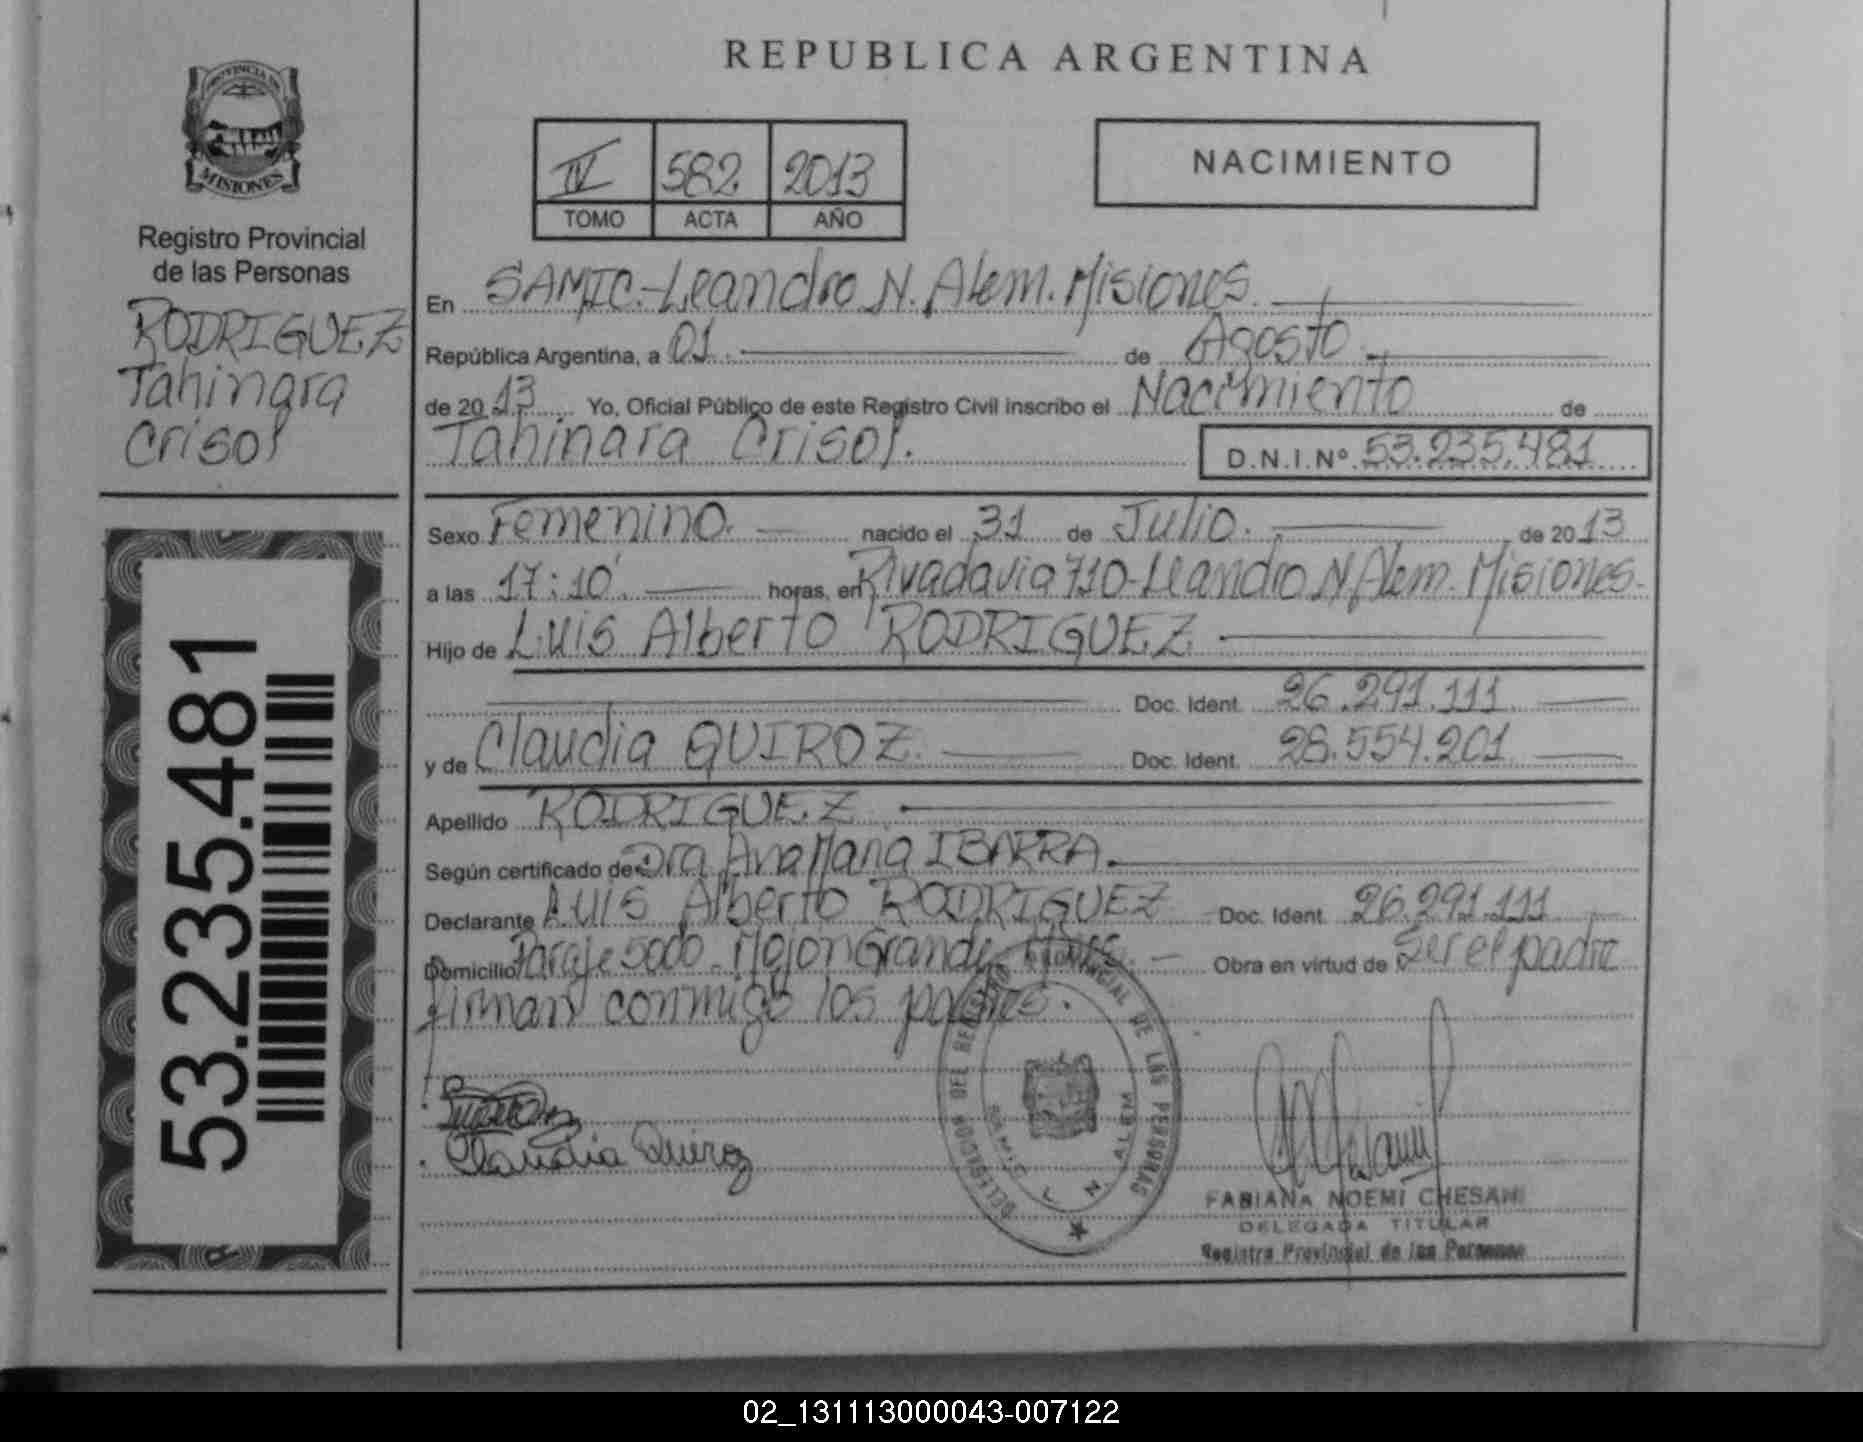 REPUBLICA ARGENTINA
PROVINCIA DE
MISIONES
Registro Provincial
de las Personas
RODRIGUEZ
Tahinara
Crisol
53.235.481
IV 582 2013
TOMO ACTA AÑO
NACIMIENTO
En SAMIC.-Leandro N. Alem. Misiones.
República Argentina, a 01. de Agosto.
de 2013 Yo, Oficial Público de este Registro Civil inscribo el Nacimiento de
Tahinara Crisol.
D.N.I.Nº 53.235.481
Sexo Femenino. nacido el 31 de Julio. de 2013
a las 17:10'. horas, en Rivadavia 710-Leandro N. Alem. Misiones.
Hijo de Luis Alberto RODRIGUEZ
Doc. Ident. 26.291.111.
y de Claudia QUIROZ. Doc. Ident. 28.554.201
Apellido RODRIGUEZ
Según certificado de Dra Ana Maria IBARRA.
Declarante Luis Alberto RODRIGUEZ Doc. Ident. 26.291.111
Domicilio Paraje Soao. Mojon Grande, Obra en virtud de Ser el padre
firman conmigo los padres.
Claudia Quiroz
DELEGACION DEL REGISTRO PROVINCIAL DE LAS PERSONAS
S.A.M.I.C. L. N. ALEM
FABIANA NOEMI CHESANI
DELEGADA TITULAR
Registro Provincial de las Personas
02_131113000043-007122